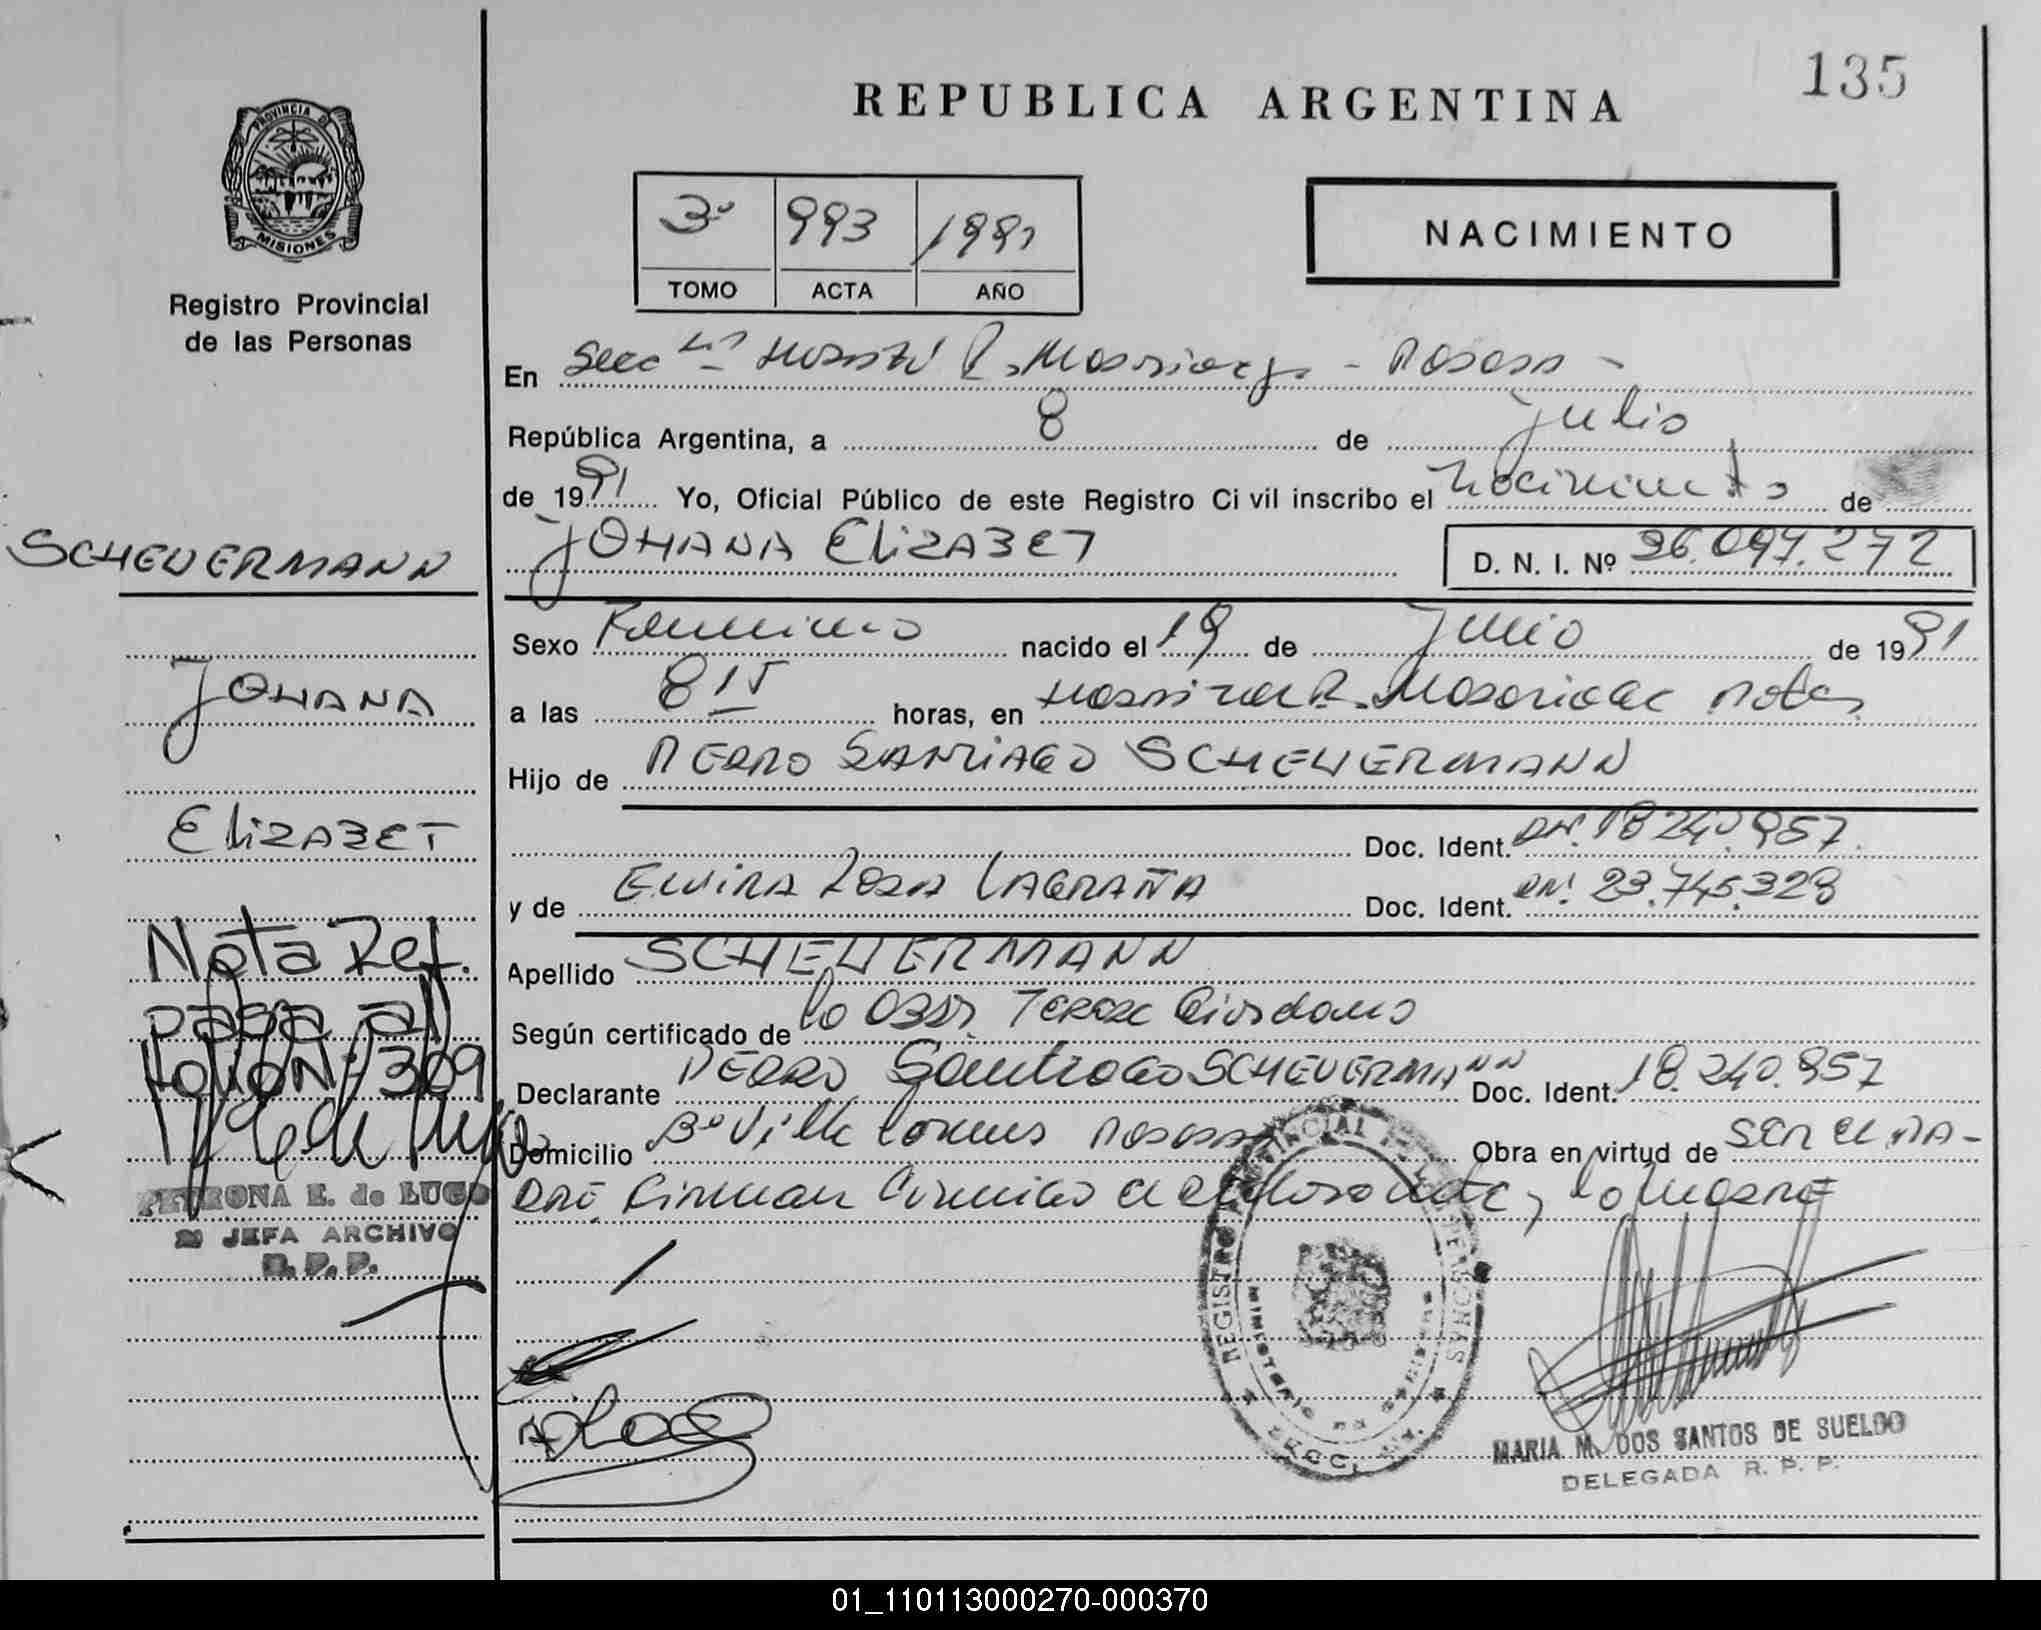 135
REPUBLICA ARGENTINA
PROVINCIA DE
MISIONES
Registro Provincial
de las Personas
3º 993 1991
TOMO ACTA AÑO
NACIMIENTO
En Secc
República Argentina, a 8 de Julio
de 1991 Yo, Oficial Público de este Registro Civil inscribo el Nacimiento de
JOHANA ELIZABET
D. N. I. Nº 36.097.272
Sexo Femenino nacido el 19 de Junio de 1991
a las 8 15 horas, en Hospital R. Madariaga Pdas
Hijo de PEDRO SANTIAGO SCHEUERMANN
Doc. Ident. DNI. 18 240.957
y de ELVIRA ROSA LAGRAÑA Doc. Ident. DNI. 23.745.323
Apellido SCHEUERMANN
Según certificado de la Obst. Teresa Giordano
Declarante PEDRO Santiago SCHEUERMANN Doc. Ident. 18.240.957
Domicilio Bº Villa Posadas Obra en virtud de SER EL PA-
DRE. Firman el declarante y la MADRE
SCHEUERMANN
JOHANA
ELIZABET
Nota Ref.
pasa al
folio Nº 309
PETRONA E. de LUGO
JEFA ARCHIVO
R. P. P.
REGISTRO PROVINCIAL DE LAS PERSONAS
MINISTERIO DE
SECC.
MARIA M. DOS SANTOS DE SUELDO
DELEGADA R. P. P.
01_110113000270-000370